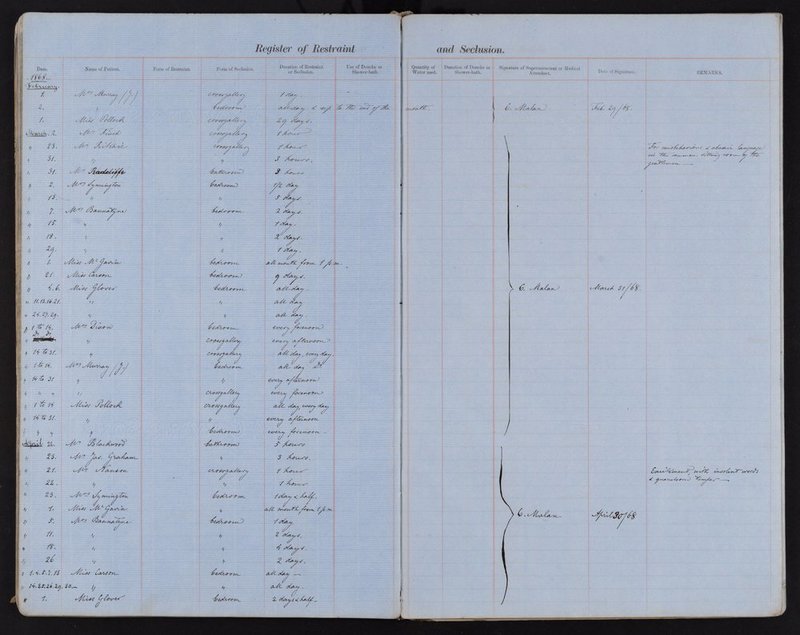 Register of Restraint and Seclusion.
Date. Name of Patient. Form of Restraint. Form of Seclusion. Duration of Restraint or Seclusion. Use of Douche or Shower-bath. Quantity of Water used. Duration of Douche or Shower-bath. Signature of Superintendent or Medical Attendant. Date of Signature. REMARKS.
1868.
February
1. Mrs Murray (J) crossgallery 1 day
2. " bedroom all day & up to the end of the month C. Malan Feb 29/68.
1. Miss Pollock crossgallery 29 days.
March 2. Mr crossgallery 1 hour
" 23. Mr Ritchie crossgallery 1 hour For misbehaviour & abusive language
in the common sitting room by the
gentlemen
" 31. " " 3 hours.
" 31. Mr Radcliffe bathroom 3 hours
" 2. Mrs Symington bedroom 1/2 day
" 13. " " 3 days
" 7. Mrs Bannatyne bedroom 2 days
" 15 " " 1 day.
" 18. " " 2 days.
" 29. " " 1 day.
" 1. Miss McGavin bedroom all month from 1 p.m.
" 21 Miss Carson bedroom 9 days.
" 4.6. Miss Glover bedroom all day. C. Malan March 31/68.
" 11.13.14.21. " " all day
" 24.27.29. " " all day.
" 1 to 14. Mrs Dixon bedroom every forenoon
" Do Do crossgallery every afternoon
" 14 to 31. " crossgallery all day, every day
" 1 to 14. Mrs Murray (J) bedroom all day Do
" 14 to 31 " " every afternoon
" " " " crossgallery every forenoon
" 1 to 14 Miss Pollock crossgallery all day every day
" 14 to 31. " " every afternoon
" " " " bedroom every forenoon
April 21. Mr Blackwood bathroom 3 hours
" 23. Mr Jas. Graham " 3 hours.
" 21. Mr crossgallery 1 hour Excitement, with insolent words
& quarrelsome temper
" 22. " " 1 hour
" 23. Mrs Symington bedroom 1 day & half.
" 1. Miss McGavin " all month from 1 p.m. C. Malan April 30/68
" 5. Mrs Bannatyne bedroom 1 day
" 11. " " 2 days.
" 18. " " 4 days.
" 26 " " 2 days.
Miss Carson bedroom all day
" " all day.
" 1. Miss Glover bedroom 2 days & half.